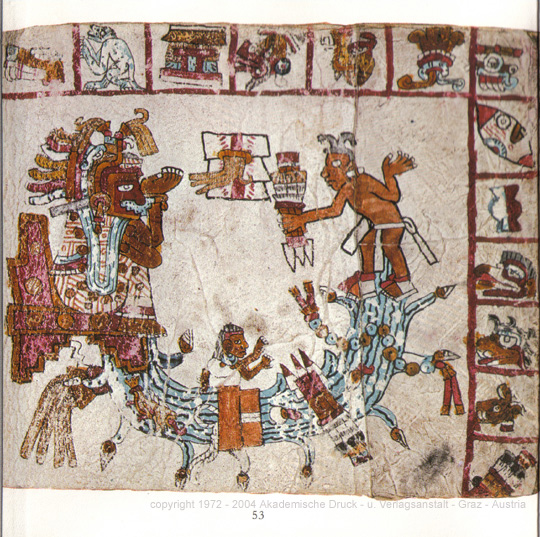 copyright 1972 - 2004 Akademische Druck - u. Verlagsanstalt - Graz - Austria
53